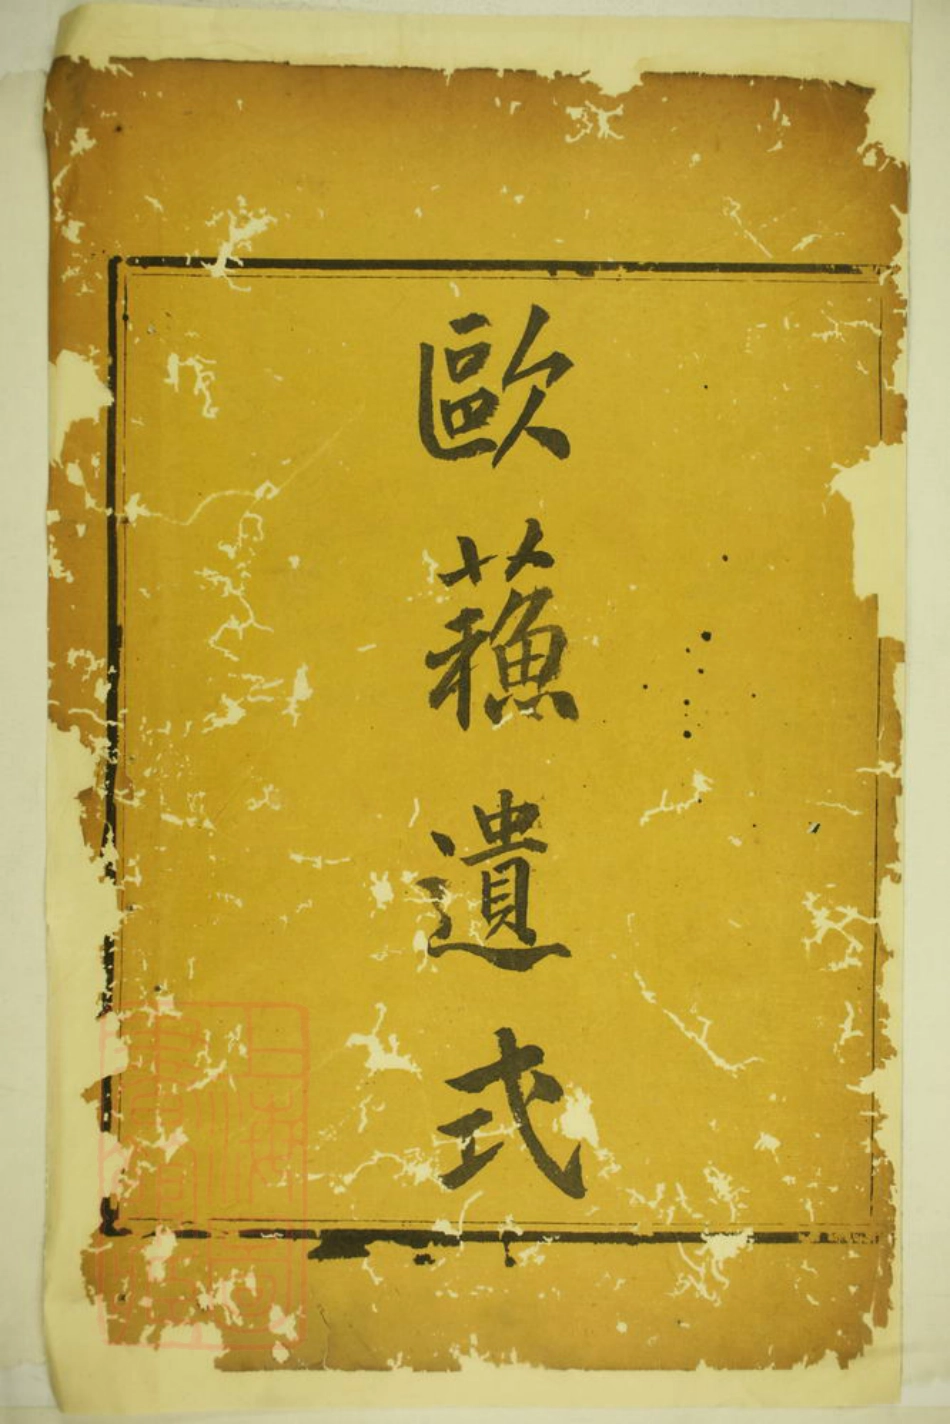 歐蘓遺式